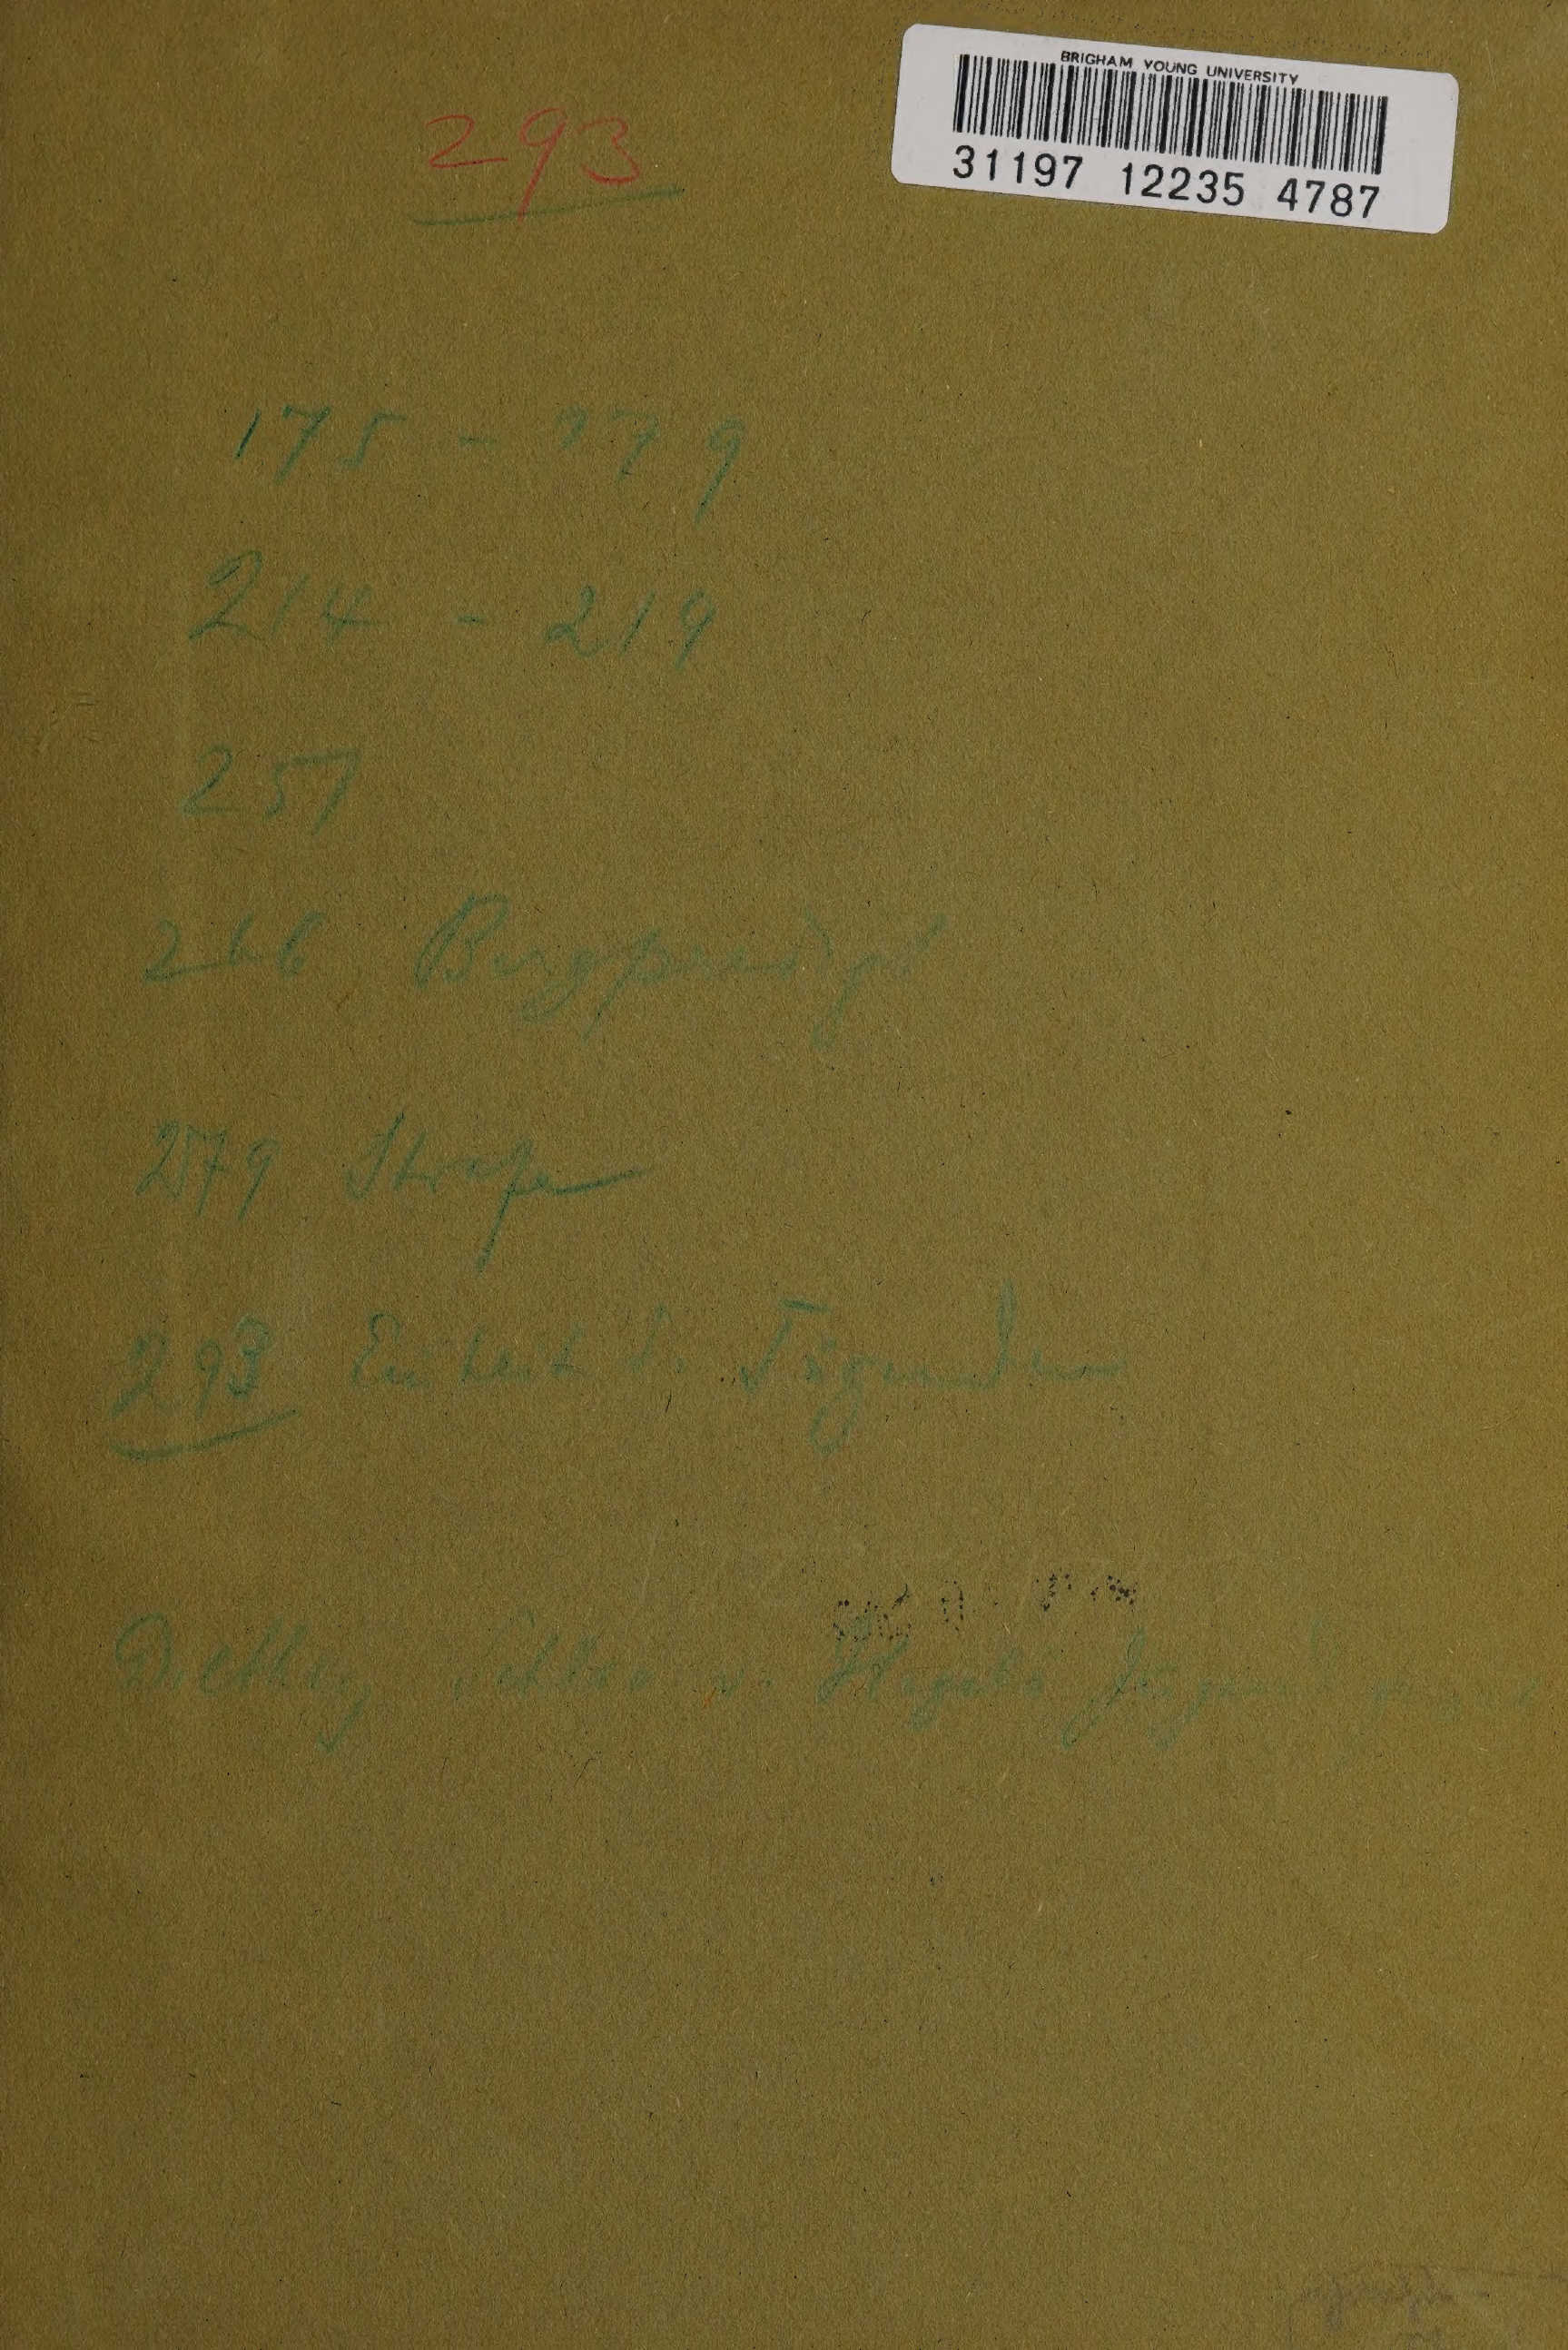 BRIGHAM YOUNG UNIVERSITY
31197 12235 4787
293
175 - 179
214 - 219
251
266 Bergpredigt
279 Strafe
293 Einheit d. Tugenden
Dilthey v. Hegels